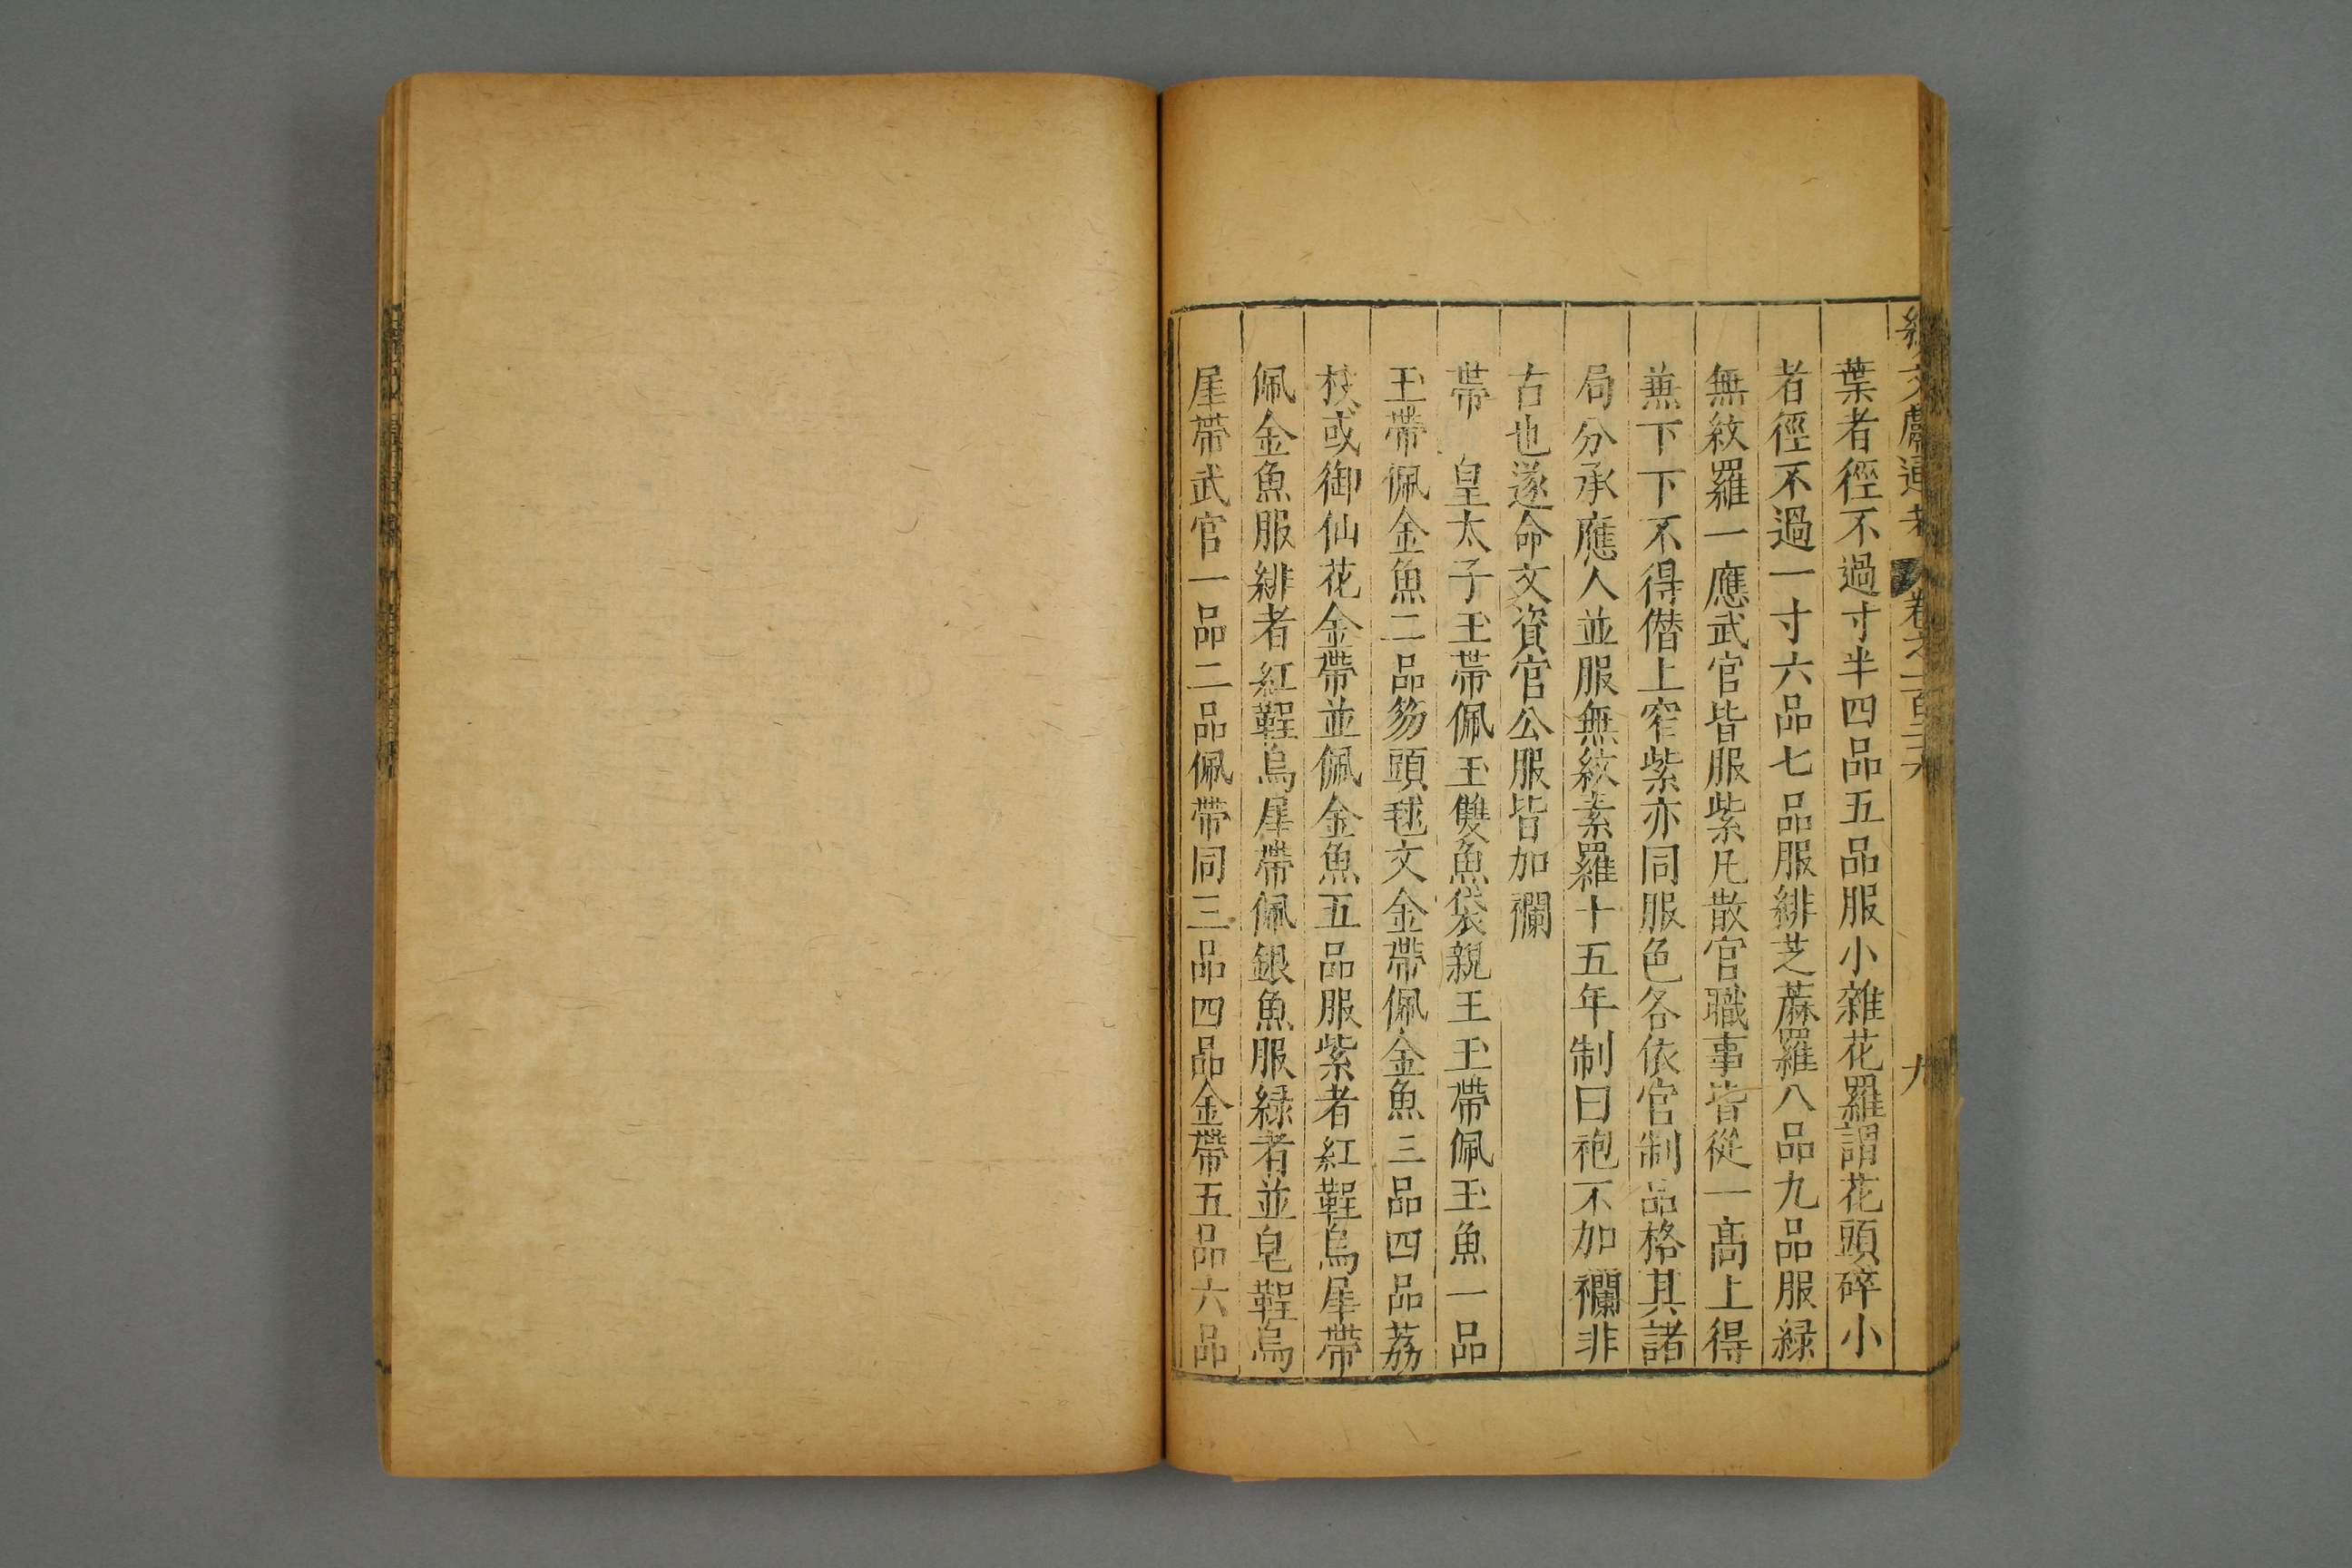 續文獻通考 卷之一百二十六 九
葉者徑不過寸半四品五品服小雜花羅謂花頭碎小
者徑不過一寸六品七品服緋芝蔴羅八品九品服緑
無紋羅一應武官皆服紫凡散官職事皆從一髙上得
兼下下不得僭上窄紫亦同服色各依官制品格其諸
局分承應人並服無紋素羅十五年制曰袍不加襴非
古也遂命文資官公服皆加襴
帶 皇太子玉帶佩玉雙魚袋親王玉帶佩玉魚一品
玉帶佩金魚二品笏頭毬文金帶佩金魚三品四品荔
枝或御仙花金帶並佩金魚五品服紫者紅鞓烏犀帶
佩金魚服緋者紅鞓烏犀帶佩銀魚服緑者並皂鞓烏
犀帶武官一品二品佩帶同三品四品金帶五品六品